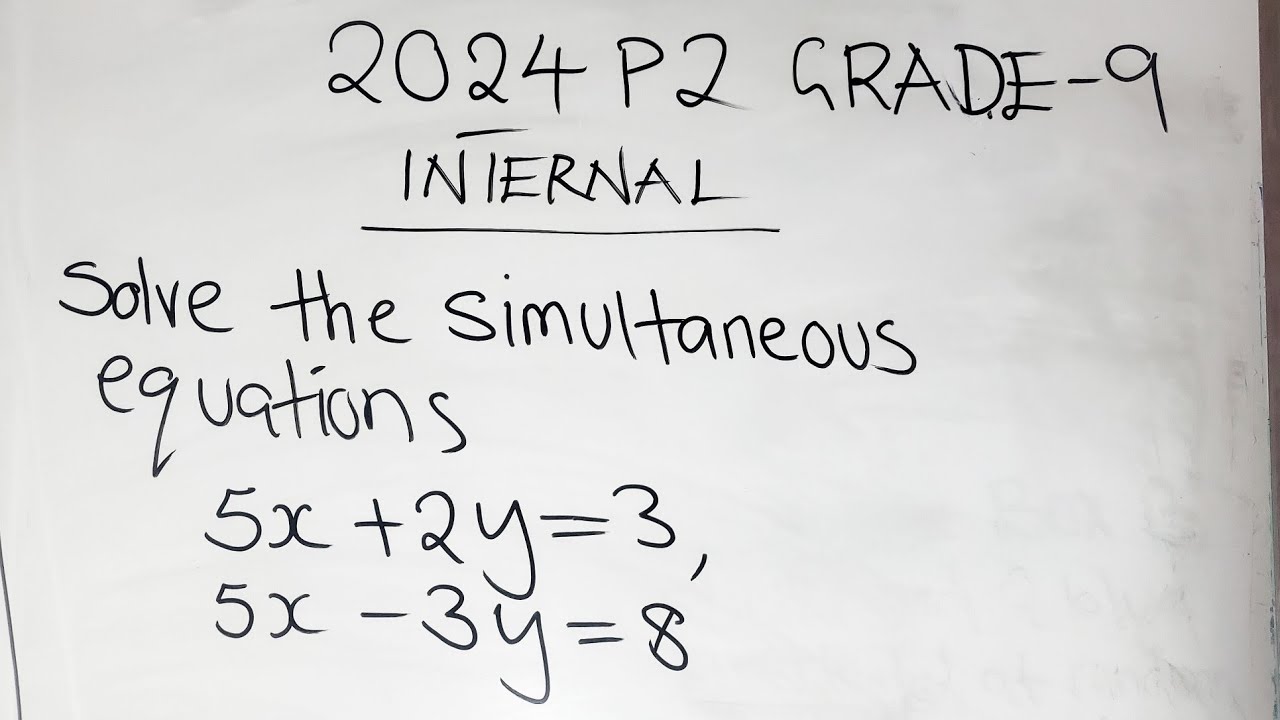 2024 P2 GRADE-9
INTERNAL
Solve the simultaneous
equations
5x + 2y = 3,
5x - 3y = 8